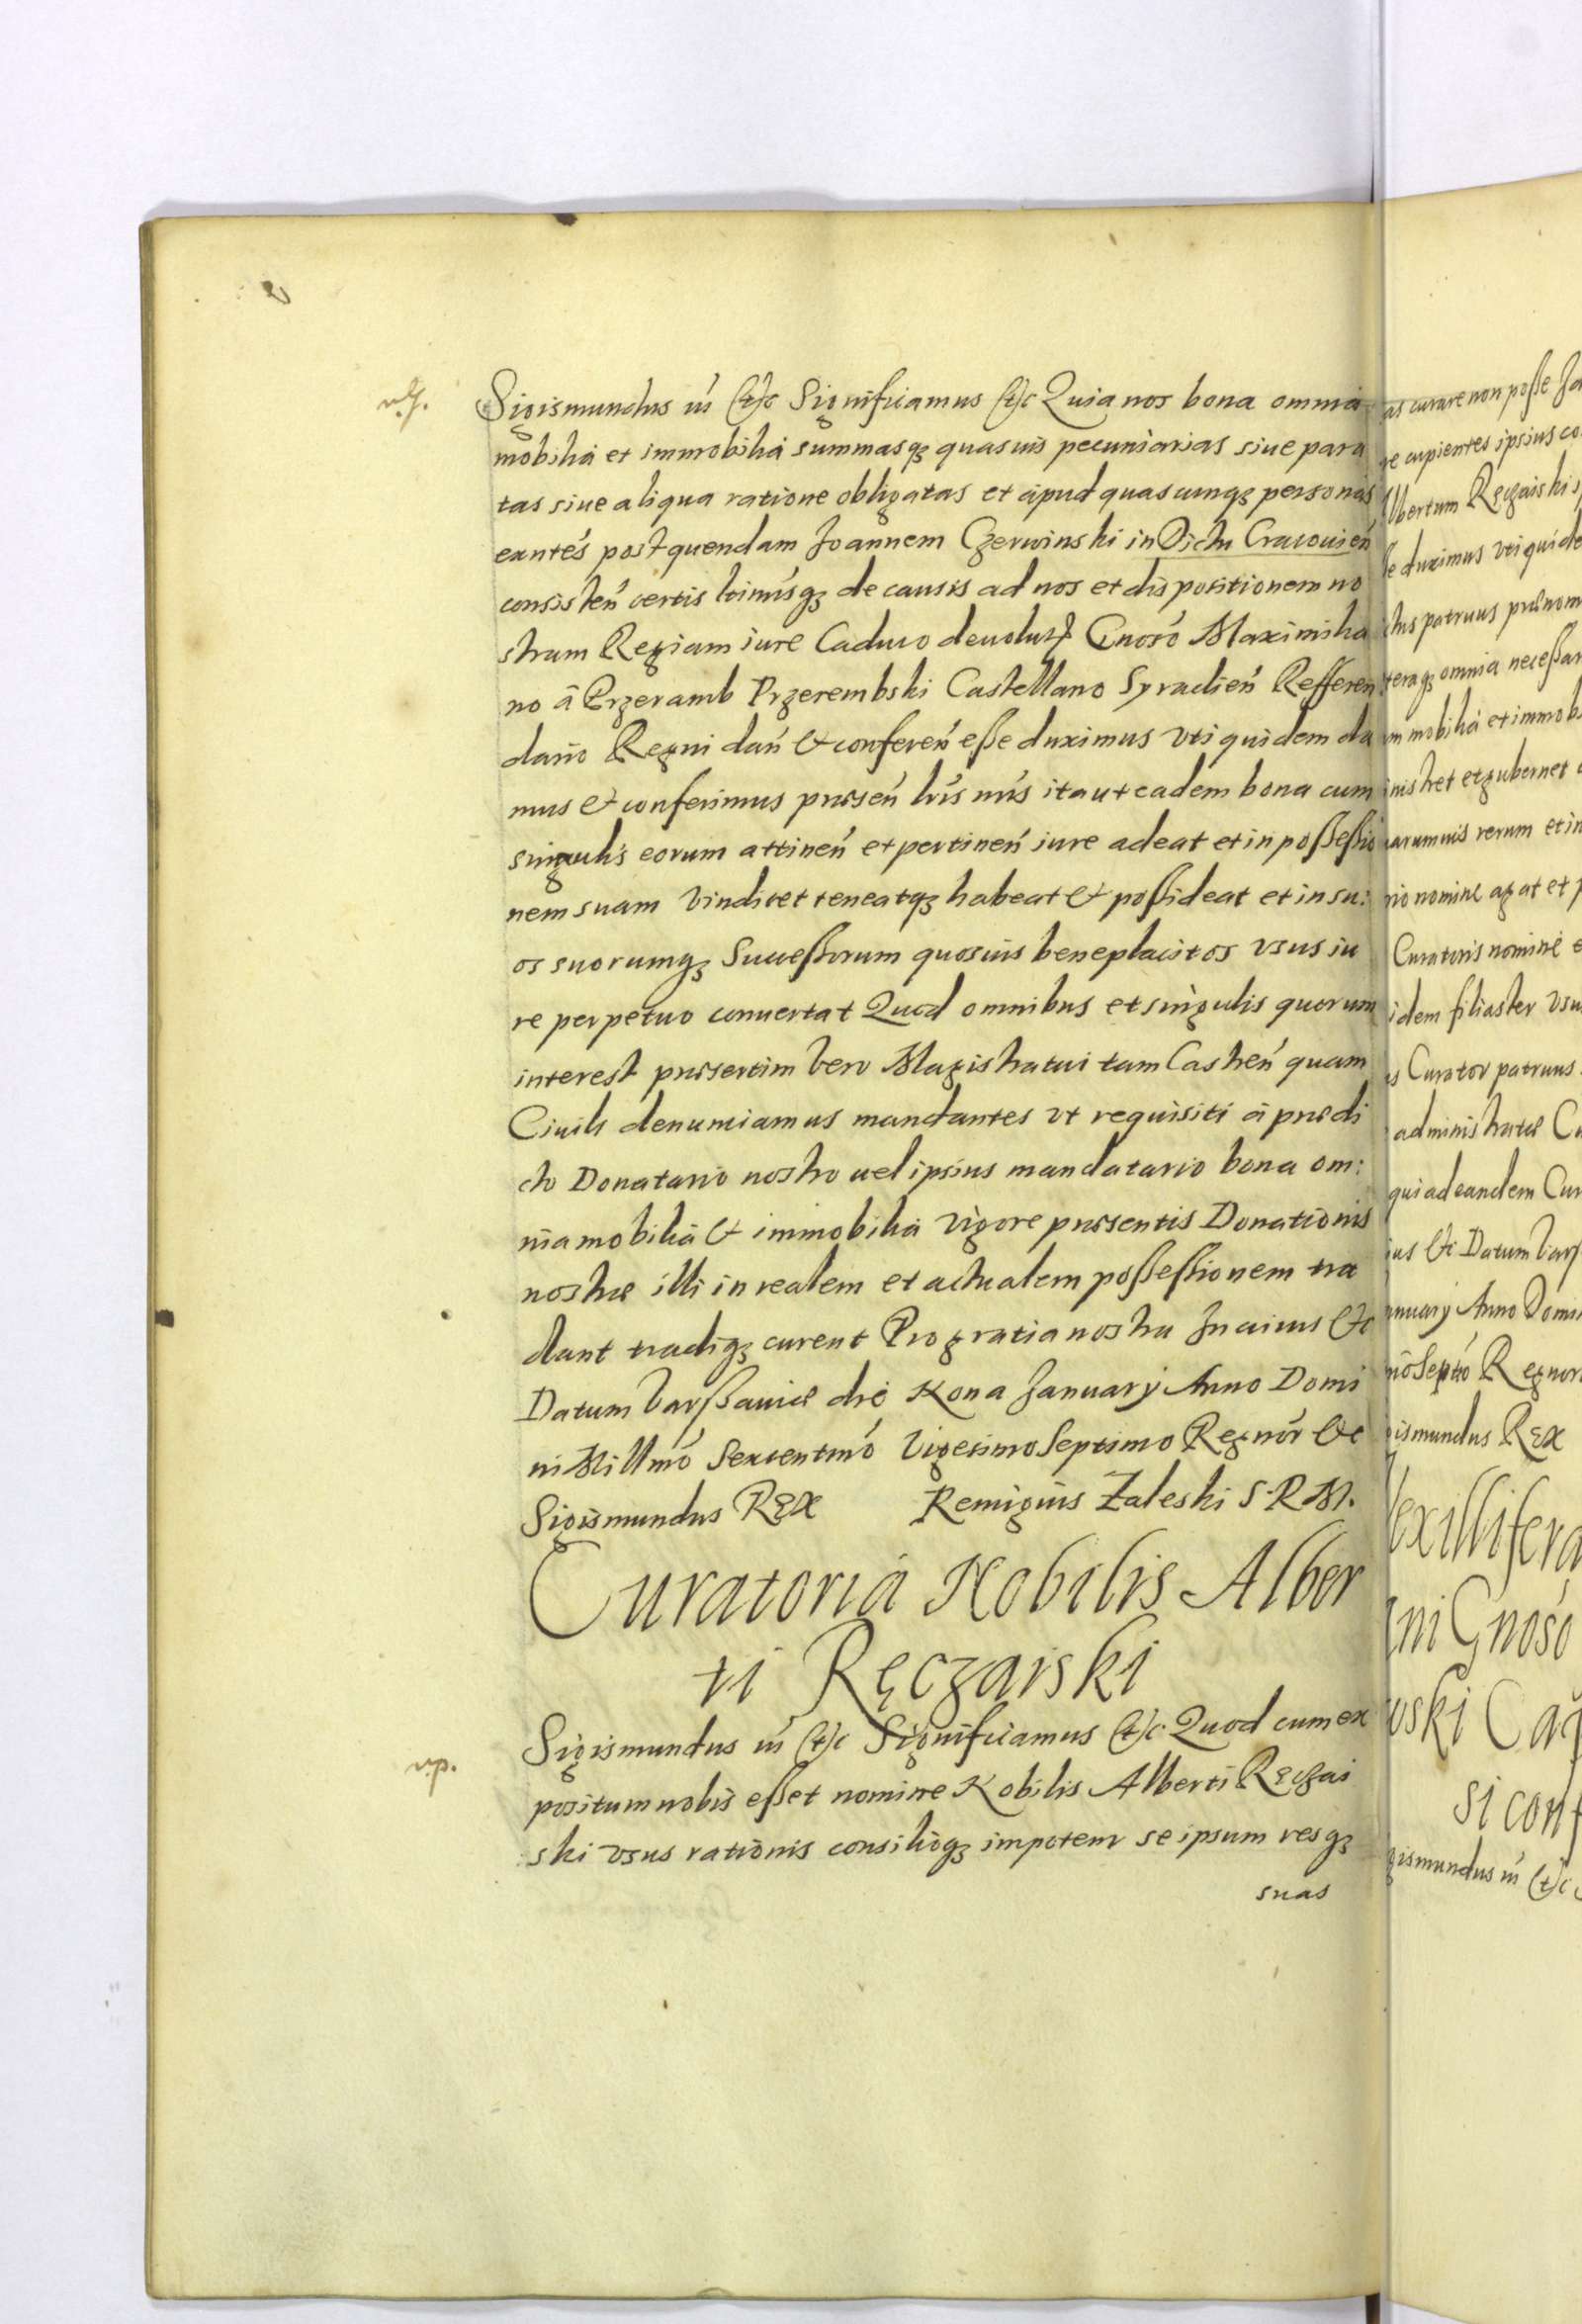 Sigismundus iii (t)c Significamus (t)c Quia nos bona omnia
mobilia et immobilia summasq3 quasuis pecuniarias siue para
tas siue aliqua ratione obligatas et apud quascunq3 personas
exntes post quendam Joannem Czerwinski in Dictu Cracouien
consisten certis ltimisq3 de causis ad nos et dispositionem no
stram Regiam iure Caduco deuolut Gnoso Maximilia
no à Przeramb Przerembski Castellano Syradien Refferen
dario Regni dan & conferen esse duximus Vti quidem da
mus & conferimus præsen lris nris ita ut eadem bona cum
singulis eorum attinen et pertinen iure adeat et in possessio
nem suam Vindicet teneatq3 habeat & possideat et in su:
os suorumq3 Successorum quosuis beneplacitos vsus iu
re perpetuo conuertat Quod omnibus et singulis quorum
interest præsertim Vero Magistratui tam Castren quam
Ciuili denunciamus mandantes vt requisiti à prædi
cto Donatario nostro uel ipsius mandatario bona om:
nia mobilia & immobilia Vigore præsentis Donationis
nostræ illi in realem et actualem possessionem tra
dant tradiq3 curent Pro gratia nostra In cuius &c
Datum Varssauiæ die Nona January Anno Domi
ni Millmo Sexcentmo Vigesimo Septimo Regnor &c
Sigismundus REX Remigius Zaleski S R M.
Curatoria Nobilis Alber
ti Ręczaiski
Sigismundus iii (t)c Significamus (t)c Quod cum ex
positum nobis esset nomine Nobilis Alberti Ręczai
ski vsus rationis consilioq3 impotem se ipsum resq3
suas
as curare non posse Ja
re cupientes ipsius co
lbertum Ręczaiski
e duximus vti quide
ctus patruus prænom
teraq3 omnia necessar
m mobilia et immob
nistret et gubernet
arumuis rerum et in
rio nomine agat et p
Curatoris nomine
idem filiaster vsu
s Curator patruus
administratæ Cu
qui ad eandem Cur
ius &c Datum Vars
nuary Anno Domi
mo Septio Regnor
gismundus REX
exillifera
ni Gnoso
wski
si conf
gismundus iii (t)c